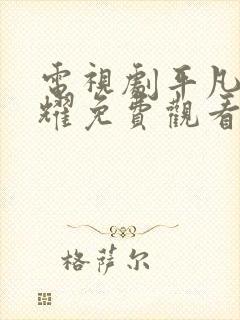 電視劇平凡
耀免費觀看
格萨尔